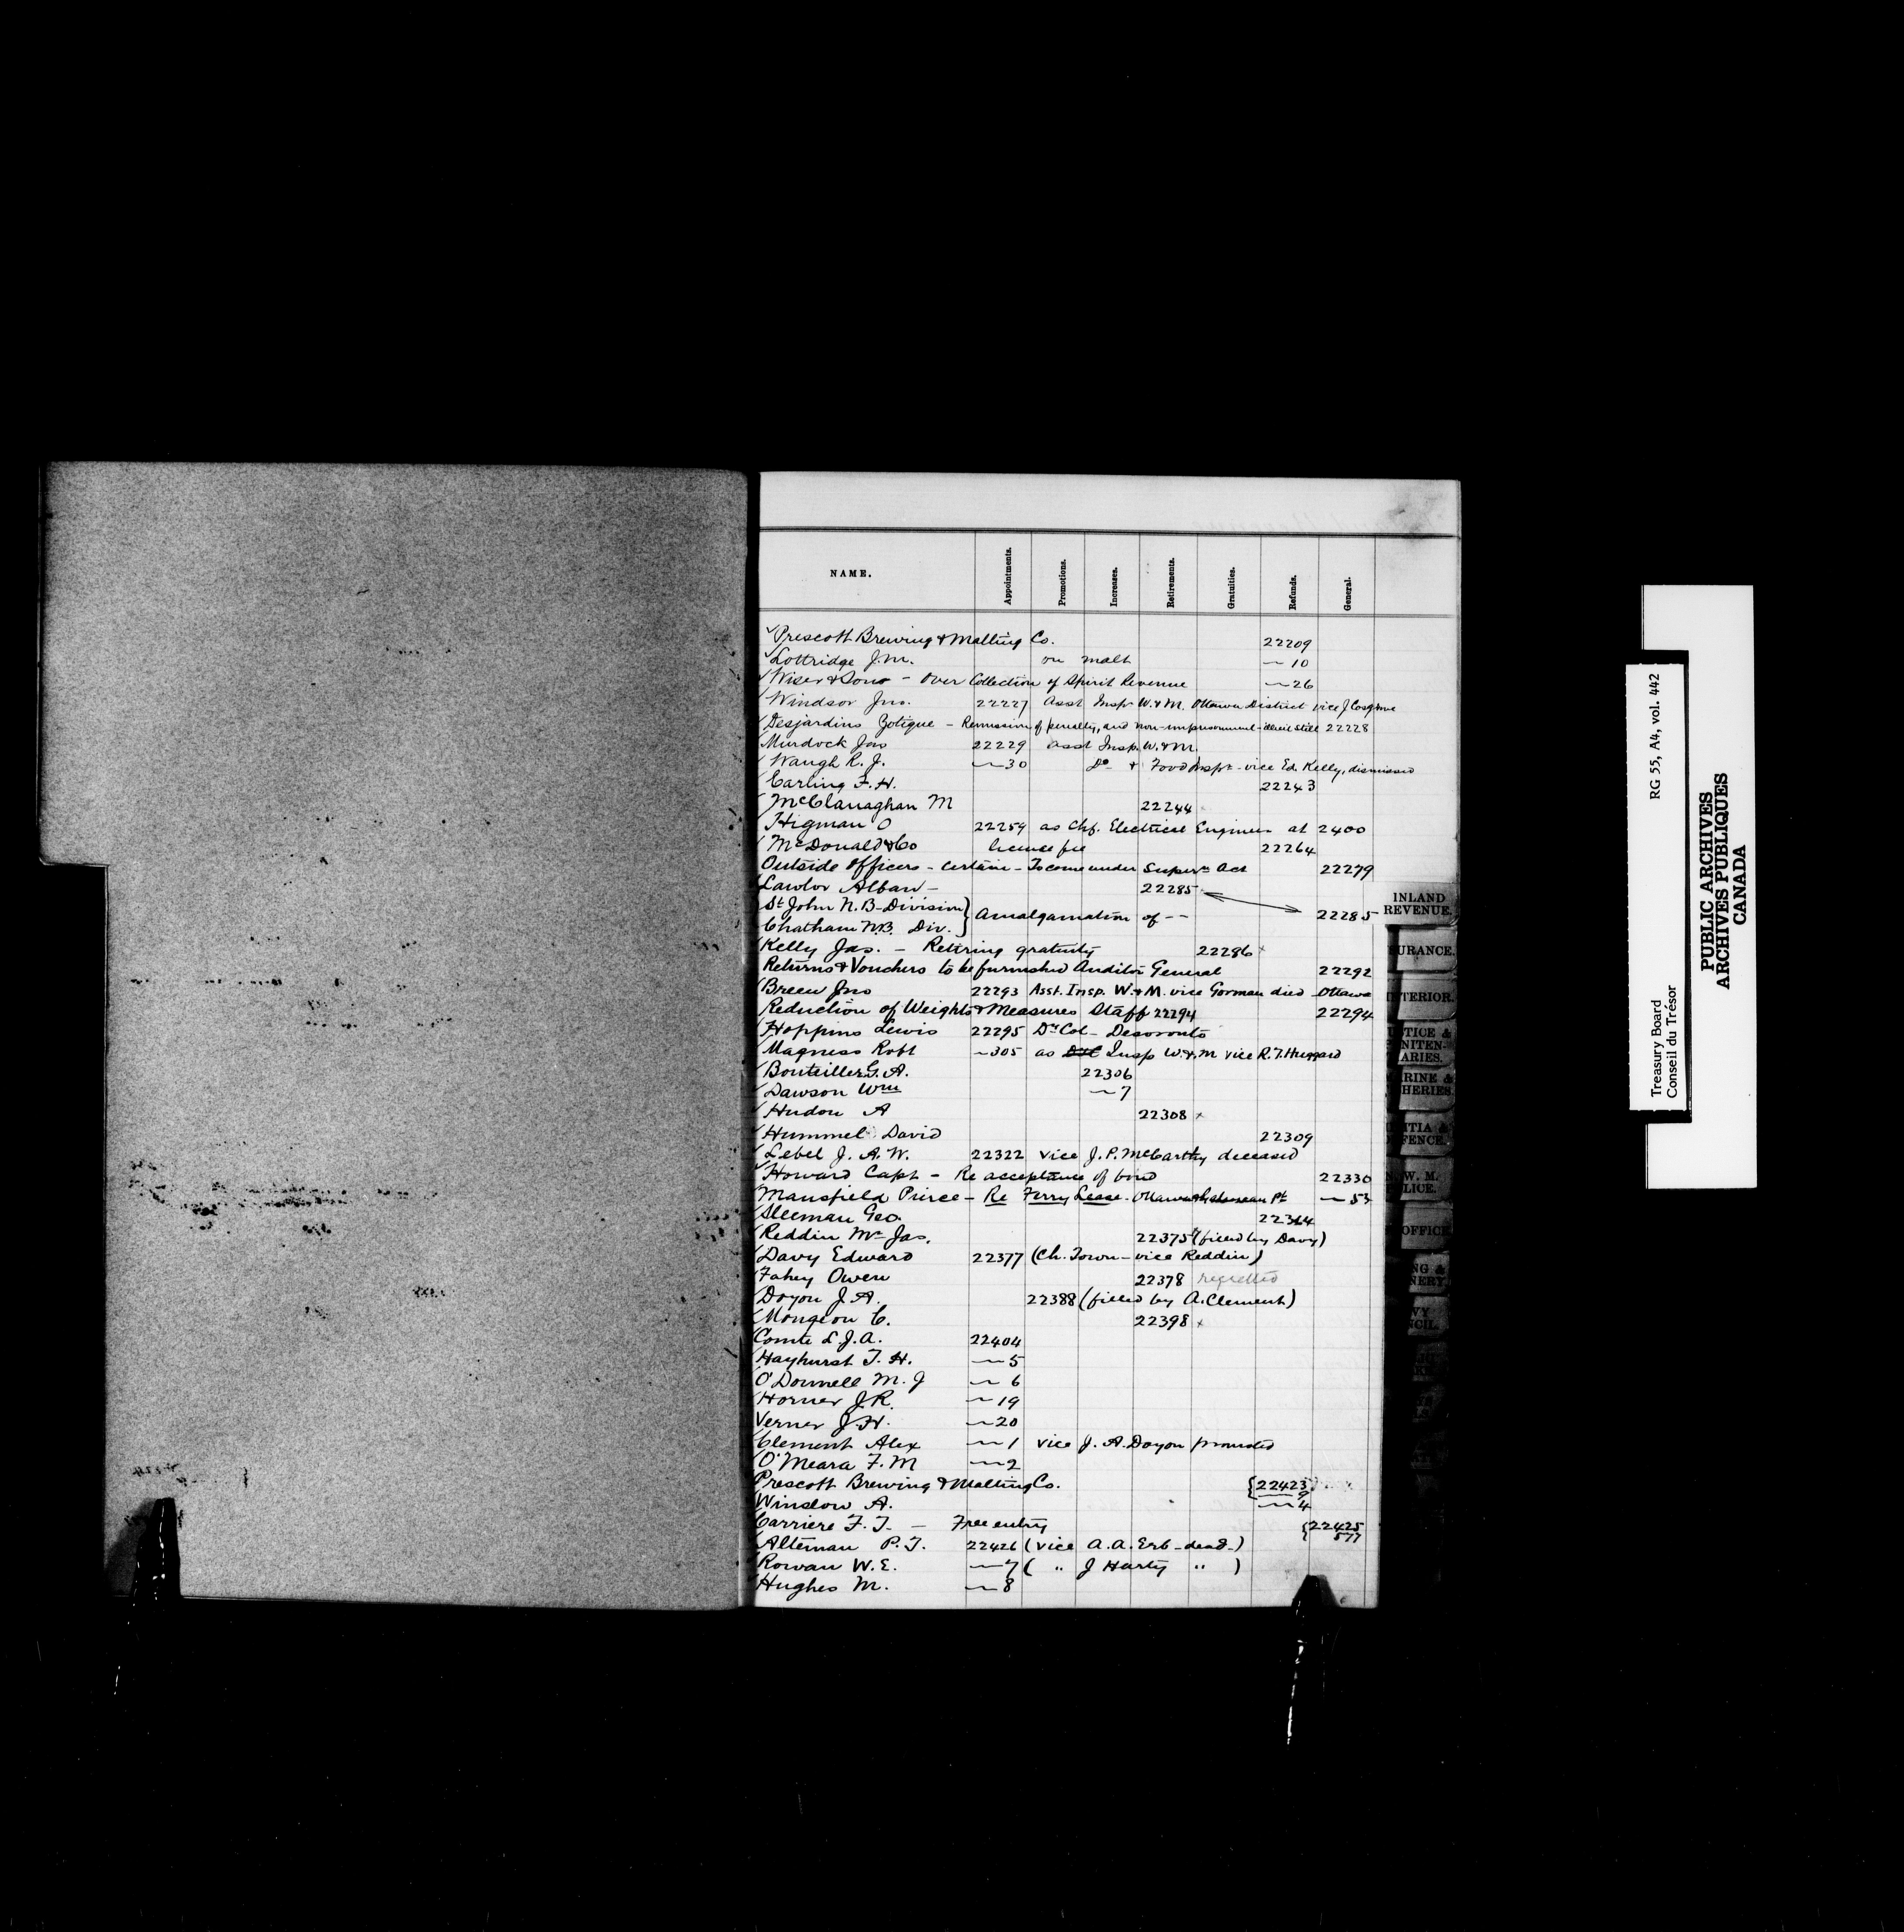 NAME. Appointments. Promotions. Increases. Retirements. Gratuities. Refunds. General.
Prescott Brewing & Malting Co. 22209
Lottridge J.M. on malt 〃 10
Wiser & Sons - Over Collection of Spirit Revenue 〃 26
Windsor Jno. 22227 Asst Insp W. & M. Ottawa District vice J Cosgrove
Desjardins Zotique - Remission of penalty, and non-imprisonment - illicit still 22228
Murdock Jas 22229 Asst Insp. W. & M.
Waugh R. J. 〃 30 Do & Food Inspr - vice Ed. Kelly, dismissed
Carling F. H. 22243
McClanaghan M 22244
Higman O 22259 as Chf. Electrical Engineer at 2400
McDonald & Co license fee 22264
Outside Officers - certain - To come under Supern Act 22279
Lawlor Alban - 22285
St John N.B. Division } Amalgamation of -- 22285
Chatham N.B. Div. }
Kelly Jas. - Retiring gratuity 22286
Returns & Vouchers to be furnished Auditor General 22292
Breen Jno 22293 Asst. Insp. W. & M. vice Gorman died - Ottawa
Reduction of Weights & Measures Staff 22294 22294
Hoppins Lewis 22295 Dy Col - Deseronto
Magness Robt 〃 305 as Insp W. & M vice R. T. Huggard
Bouteiller G. A. 22306
Dawson Wm 〃 7
Hudon A 22308 x
Hummel David 22309
Lebel J. A. W. 22322 vice J. P. McCarthy deceased
Howard Capt - Re acceptance of bond 22330
Mansfield Pierce - Re Ferry Lease - Ottawa & Gatineau Pt 〃 53
Sleeman Geo. 22364
Reddin Mc Jas. 22375 (filled by Davy)
Davy Edward 22377 (Ch. Town - vice Reddin)
Fahey Owen 22378 regretted
Doyon J. A. 22388 (filled by A. Clement)
Mongeon C. 22398 x
Comte L. J. A. 22404
Hayhurst T. H. 〃 5
O'Donnell M. J 〃 6
Horner J. R. 〃 19
Verner J. H. 〃 20
Clement Alex 〃 1 vice J. A. Doyon promoted
O'Meara F. M 〃 2
Prescott Brewing & Malting Co. {22423
〃 9
Winslow A. 〃 4
Carriere F. T. - Free entry {22425
577
Alteman P. T. 22426 (vice A. A. Erb - dead -)
Rowan W. E. 〃 7 ( " J Harty " )
Hughes M. 〃 8
INLAND REVENUE.
URANCE.
TERIOR.
TICE &
NITEN-
ARIES.
RINE &
HERIES
ITIA &
FENCE.
W. M.
LICE.
OFFICE
NG &
NERY
VY
CIL.
Treasury Board RG 55, A4, vol. 442
Conseil du Trésor
PUBLIC ARCHIVES
ARCHIVES PUBLIQUES
CANADA